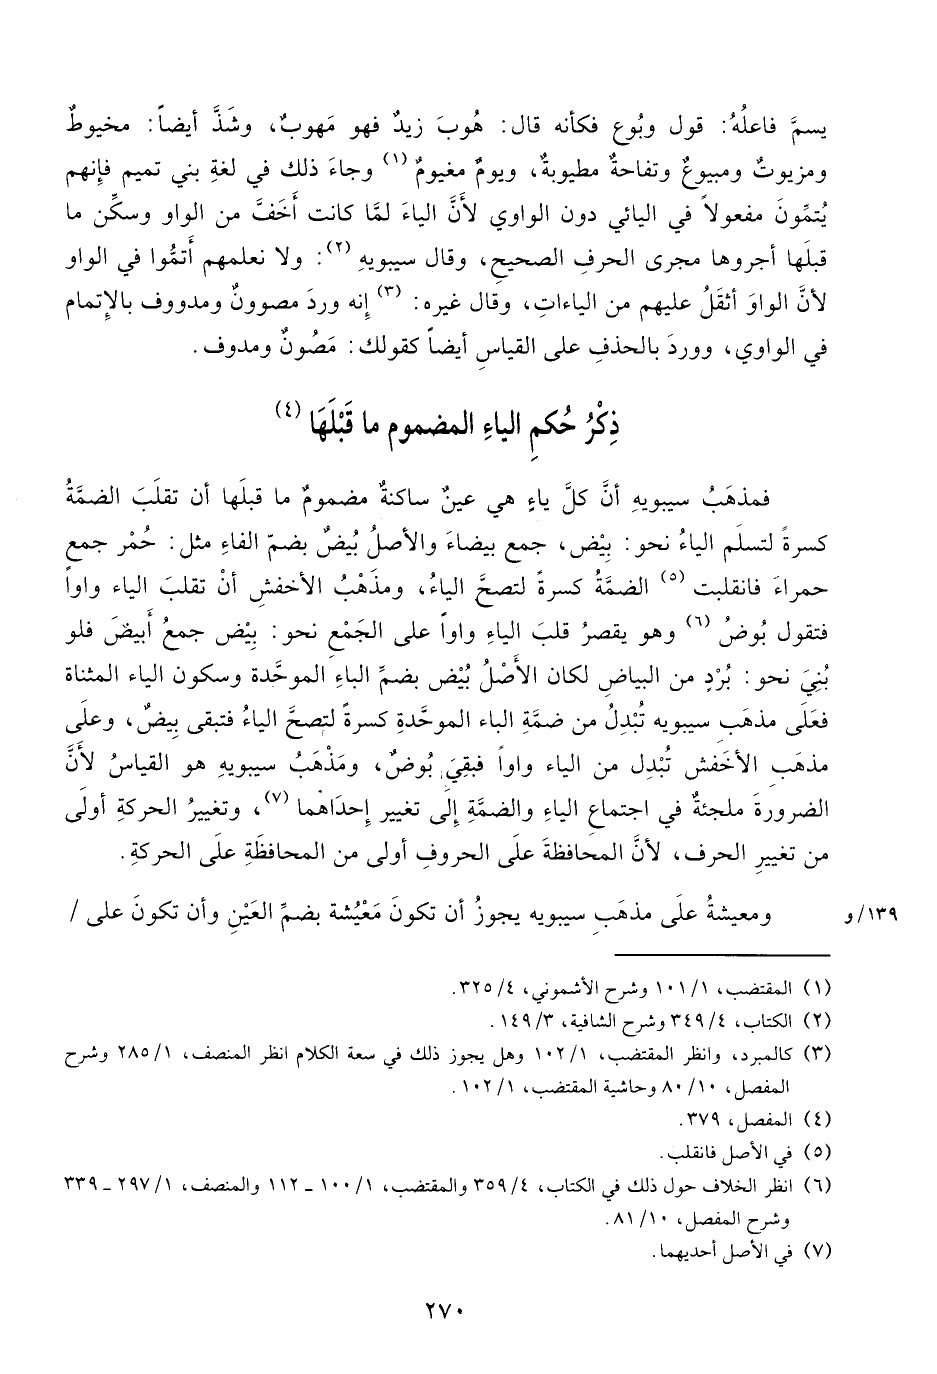 يسمَّ فاعلُهُ: قول وبُوع فكأنه قال: هُوبَ زيدٌ فهو مَهوبٌ، وشَذَّ أيضاً: مخيوطٌ
ومزيوتٌ ومبيوعٌ وتفاحةٌ مطيوبةٌ، ويومٌ مغيومٌ (١) وجاءَ ذلك في لغةِ بني تميم فإنهم
يُتمِّونَ مفعولاً في اليائي دون الواوي لأنَّ الياءَ لمَّا كانت أَخَفَّ من الواو وسكِّن ما
قبلَها أجروها مجرى الحرفِ الصحيحِ، وقال سيبويهِ (٢): ولا نعلمهم أَتمُّوا في الواو
لأنَّ الواوَ أثقَلُ عليهم من الياءاتِ، وقال غيره: (٣) إنه وردَ مصوونٌ ومدووف بالإتمام
في الواوي، ووردَ بالحذفِ على القياسِ أيضاً كقولك: مَصُونٌ ومدوف.
ذِكْرُ حُكمِ الياءِ المضموم ما قَبْلَهَا (٤)
فمذهَبُ سيبويهِ أنَّ كلَّ ياءٍ هي عينٌ ساكنةٌ مضمومٌ ما قبلَها أن تقلَبَ الضمَّةُ
كسرةً لتسلَم الياءُ نحو: بِيْض، جمع بيضاءَ والأصلُ بُيضٌ بضمّ الفاءِ مثل: حُمْر جمع
حمراءَ فانقلبت (٥) الضمَّةُ كسرةً لتصحَّ الياءُ، ومذَهْبُ الأخفشِ أنْ تقلبَ الياء واواً
فتقول بُوضُ (٦) وهو يقصرُ قلبَ الياءِ واواً على الجَمْعِ نحو: بِيْض جمعُ أَبيضَ فلو
بُنِيَ نحو: بُرْدٍ من البياضِ لكان الأَصْلُ بُيْض بضمِّ الباءِ الموحَّدة وسكون الياء المثناة
فعَلَى مذهَبِ سيبويه تُبْدِلُ من ضمَّةِ الباء الموحَّدةِ كسرةً لتصحَّ الياءُ فتبقى بِيضٌ، وعلَى
مذهَبِ الأخفش تُبْدِل من الياء واواً فبقِيَ بُوضٌ، ومَذْهَبُ سيبويهِ هو القياسُ لأنَّ
الضرورةَ ملجئةٌ في اجتماع الياءِ والضمَّةِ إِلَى تغيير إِحدَاهُما (٧)، وتغييرُ الحركةِ أولَى
من تغييرِ الحرف، لأنَّ المحافظةَ علَى الحروفِ أولى من المحافظَةِ علَى الحركةِ.
١٣٩/و ومعيشةُ علَى مذهَبِ سيبويه يجوزُ أن تكونَ مَعْيُشة بضمِّ العَيْنِ وأن تكونَ على /
(١) المقتضب، ١٠١/١ وشرح الأشموني، ٣٢٥/٤.
(٢) الكتاب، ٣٤٩/٤ وشرح الشافية، ١٤٩/٣.
(٣) كالمبرد، وانظر المقتضب، ١٠٢/١ وهل يجوز ذلك في سعة الكلام انظر المنصف، ٢٨٥/١ وشرح
المفصل، ٨٠/١٠ وحاشية المقتضب، ١٠٢/١.
(٤) المفصل، ٣٧٩.
(٥) في الأصل فانقلب.
(٦) انظر الخلاف حول ذلك في الكتاب، ٣٥٩/٤ والمقتضب، ١٠٠/١ ـ ١١٢ والمنصف، ٢٩٧/١ ـ ٣٣٩
وشرح المفصل، ٨١/١٠.
(٧) في الأصل أحديهما.
٢٧٠